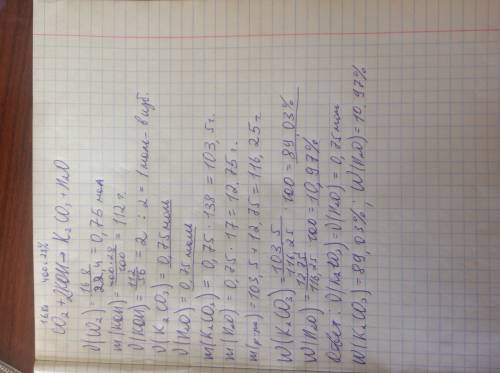 16,8 400×28%
CO2 + 2KOH → K2CO3 + H2O
ν(CO2) = 16,8/22,4 = 0,75 мол
m(KOH) = 400×28/100 = 112 г.
ν(KOH) = 112/56 = 2 : 2 = 1 моль - в изб.
ν(K2CO3) = 0,75 моль
ν(H2O) = 0,75 моль
m(K2CO3) = 0,75 · 138 = 103,5 г.
m(H2O) = 0,75 · 17 = 12.75 г.
m(р-ра) = 103,5 + 12,75 = 116,25 г
W(K2CO3) = 103,5/116,25 · 100 = 89,03%
W(H2O) = 12,75/116,25 · 100 = 10,97%
Ответ: ν(K2CO3) = ν(H2O) = 0,75 мол
W(K2CO3) = 89,03%; W(H2O) = 10.97%